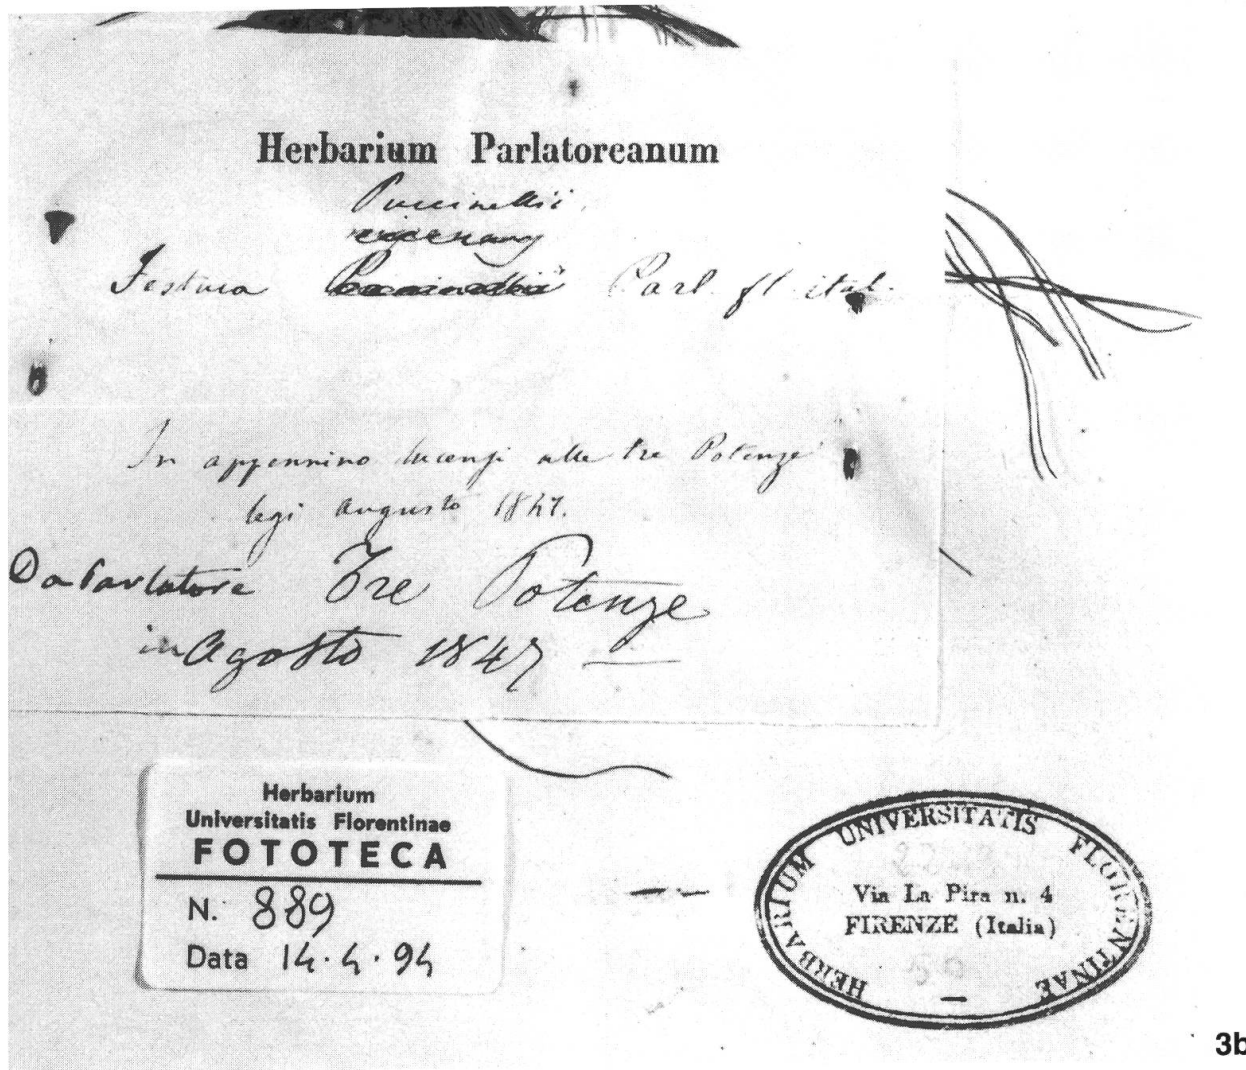 Herbarium Parlatoreanum
Puccinellii
Festuca Puccinellii Parl. fl. ital.
In appennino lucensi alle tre Potenze
legi augusto 1847.
Da Parlatore Tre Potenze
in Agosto 1847
Herbarium
Universitatis Florentinae
FOTOTECA
N. 889
Data 14.4.94
HERBARIUM UNIVERSITATIS FLORENTINAE
Via La Pira n. 4
FIRENZE (Italia)
3b